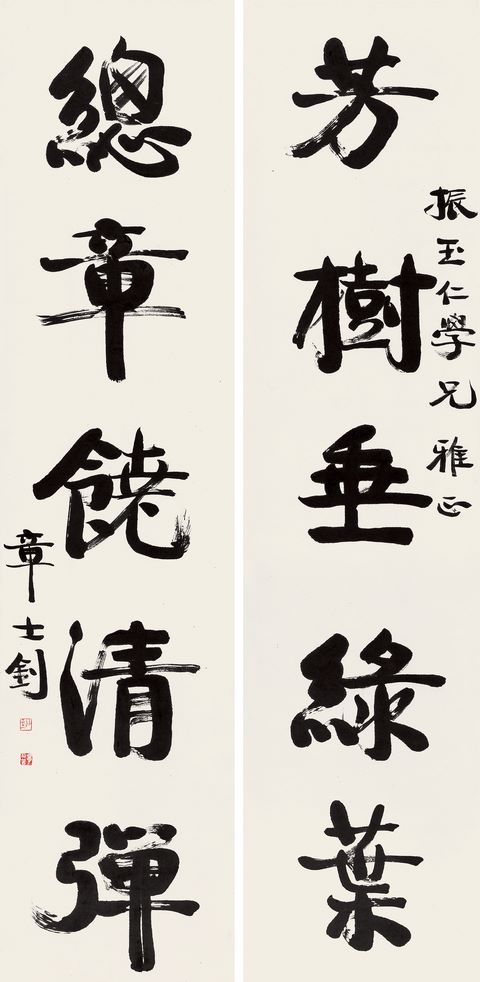 振玉仁學兄雅正
芳樹垂綠葉
總章饒清彈
章士釗